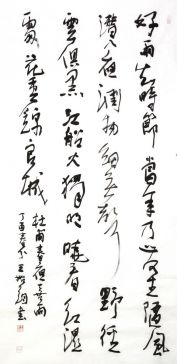 好雨知時節當春乃發生隨風
潛入夜潤物細無聲野徑
雲俱黑江船火獨明曉看紅濕
處花重錦官城
杜甫春夜喜雨
丁酉